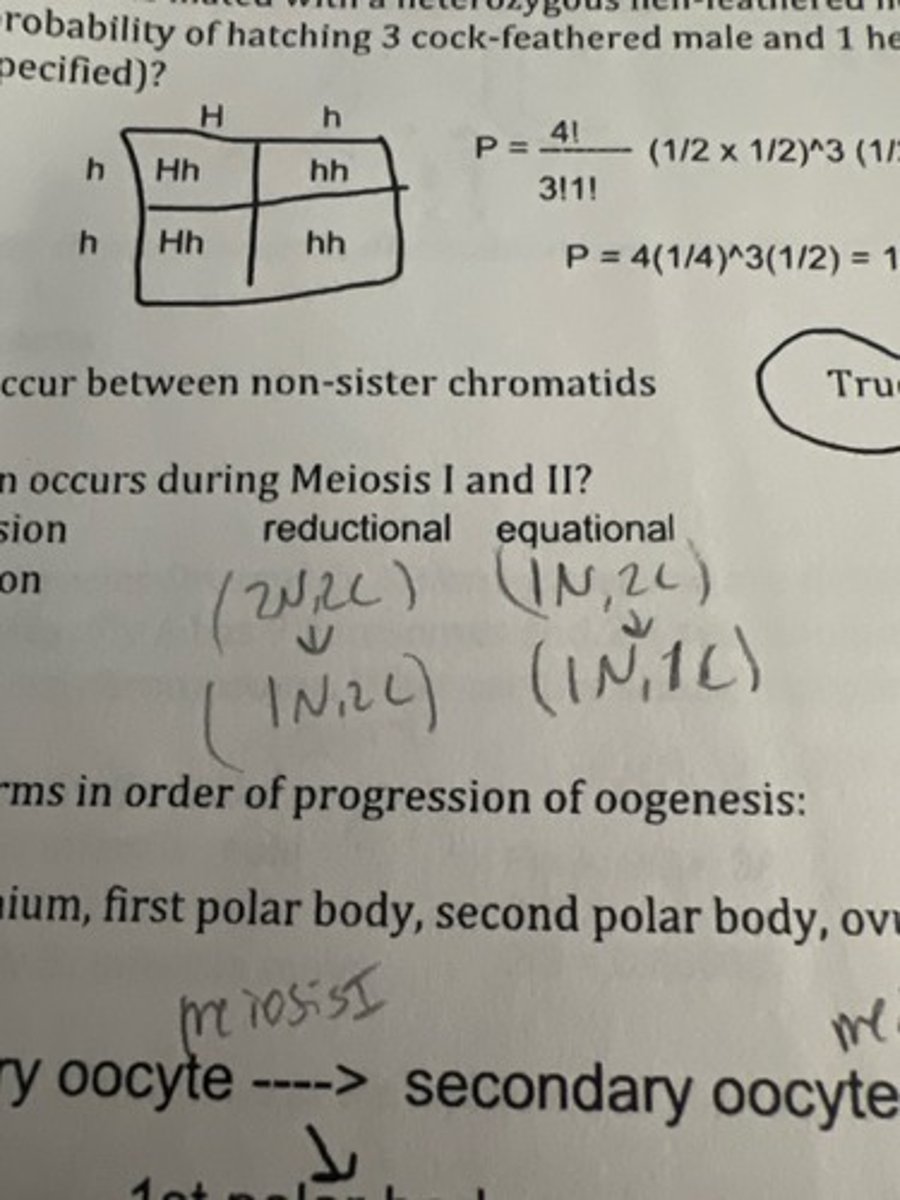 with a heterozygous hen-feathered
robability of hatching 3 cock-feathered male and 1 he
pecified)?
H h
h Hh hh
h Hh hh
P = 4! (1/2 x 1/2)^3 (1/
3!1!
P = 4(1/4)^3(1/2) = 1
ccur between non-sister chromatids
Tru
n occurs during Meiosis I and II?
sion reductional equational
on
(2N,2C) (1N,2C)
↓ ↓
(1N,2C) (1N,1C)
rms in order of progression of oogenesis:
ium, first polar body, second polar body, ov
meiosis I me
ry oocyte ----> secondary oocyte
↓
1st polar bod